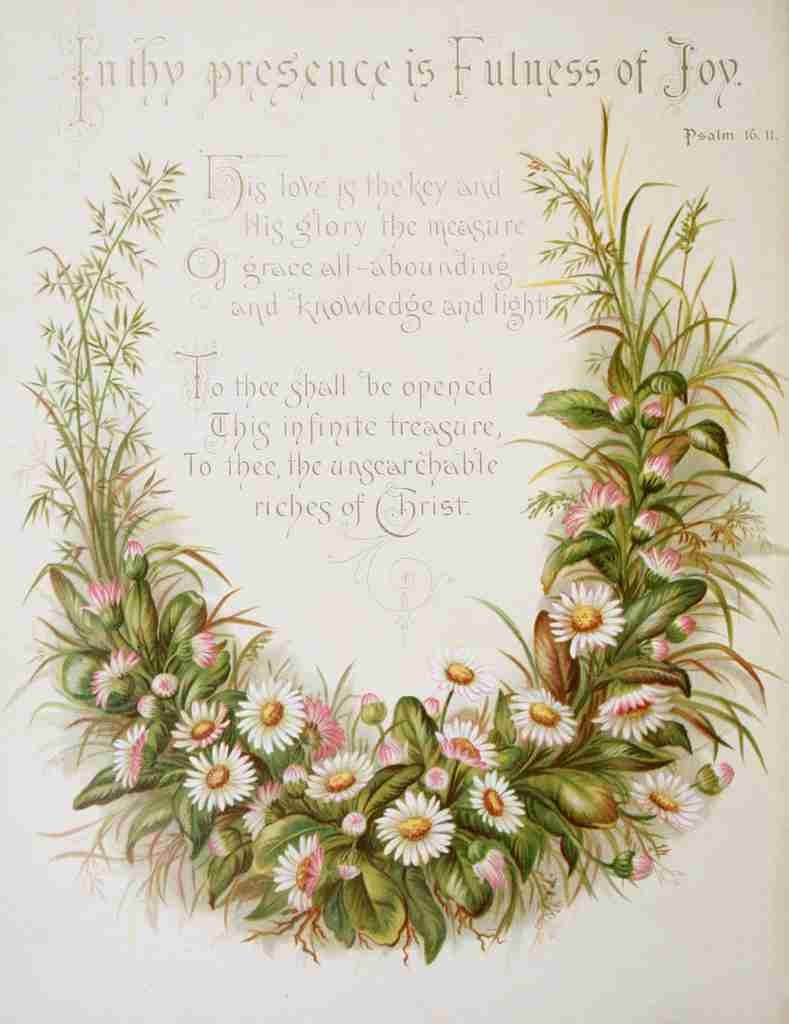 In thy presence is Fulness of Joy.
Psalm 16. 11.
His love is the key and
His glory the measure
Of grace all-abounding
and knowledge and light!
To thee shall be opened
This infinite treasure,
To thee, the unsearchable
riches of Christ.